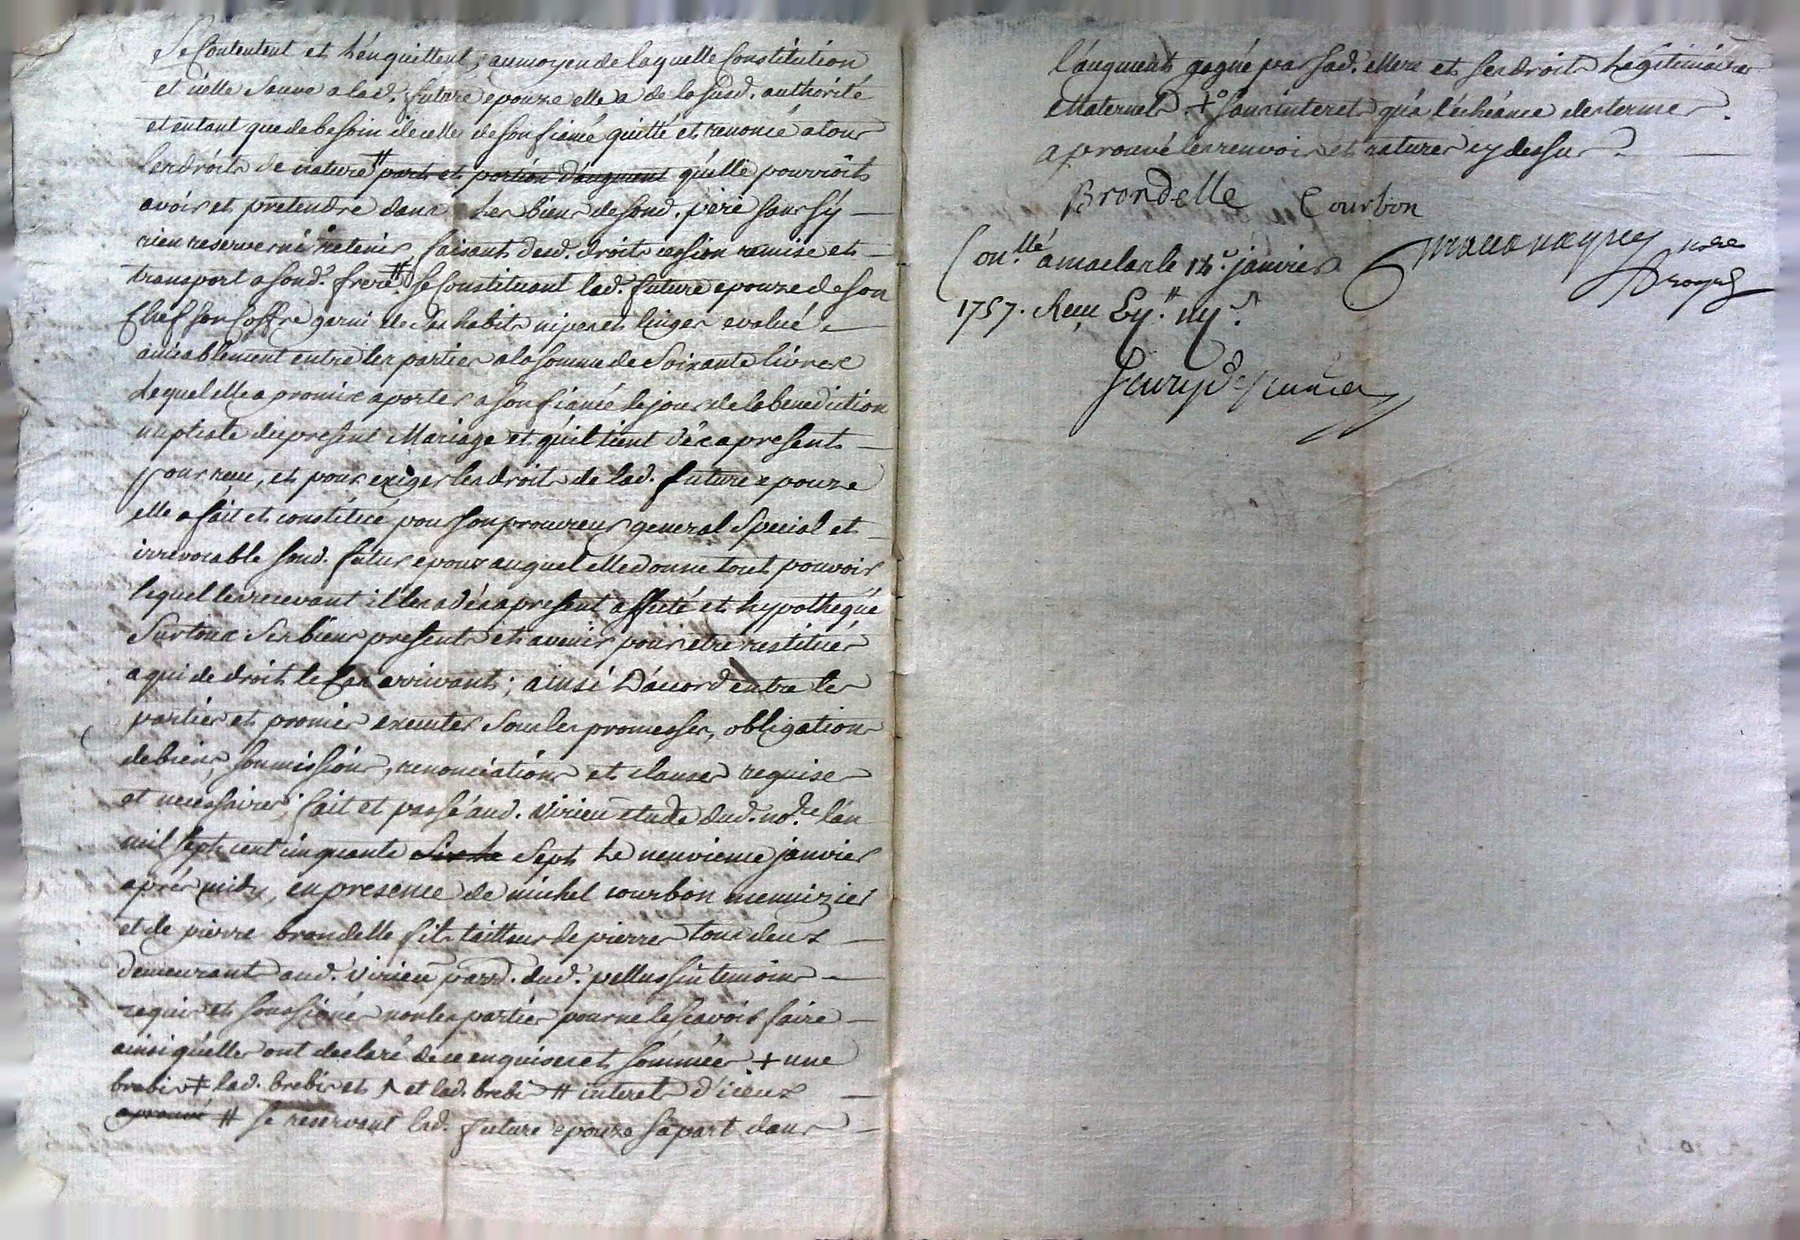 se contentent et l'en quittent, au moyen de laquelle constitution
et icelle sauve a lad. future epouze elle a de la susd. authorité
et entant que de besoin de celle de son fiancé quitté et renoncé a tous
ses droits de nature # part et portion d'augment qu'elle pourroit
avoir et pretendre dans les biens de sond. pere sans s'y
rien reserver ni retenir faisant desd. droits cession remise et
transport a sond. frere # se constituant lad. future epouze de son
chef son coffre garni de ses habits nipes et linges evalué
amiablement entre les parties a la somme de soixante livres
lequel elle a promis aporter a son fiancé le jour de la benediction
nuptiale du present mariage et qu'il tient dès a present
pour reçu, et pour exiger les droits de lad. future epouze
elle a fait et constitué pour son procureur general special et
irrevocable sond. futur epoux auquel elle donne tout pouvoir
lequel les recevant il les a dès a present affecté et hypothéqué
sur tous ses biens presents et avenir pour etre restitués
a qui de droit le cas arrivant; ainsi d'acord entre les
parties et promis executer sous les promesses, obligations
de biens, soumissions, renonciations et clauses requises
et necessaires; fait et passé aud. virieu etude dud. no.re l'an
mil sept cent cinquante sept le neuvieme janvier
après midy, en presence de michel courbon menuizier
et de pierre brondelle fils tailleur de pierres tous deux
demeurant aud. virieu parr. dud. pellussin temoins
requis et soussignés non les parties pour ne le scavoir faire
ainsi qu'elles ont declaré de ce enquises et sommées + une
brebis ǂ lad. brebis et ^ et lad. brebi # interets d'iceux
# se reservant lad. future epouze sa part dans
l'augment gagné par sad. mere et ses droits légitimaires
maternels +° sans interet qu'a l'échéance des termes.
aprouvé les renvois et ratures cy dessus.
Brondelle Courbon
Con.llé a maclas le 12.e janvier
1757. Reçu
no.re
royal